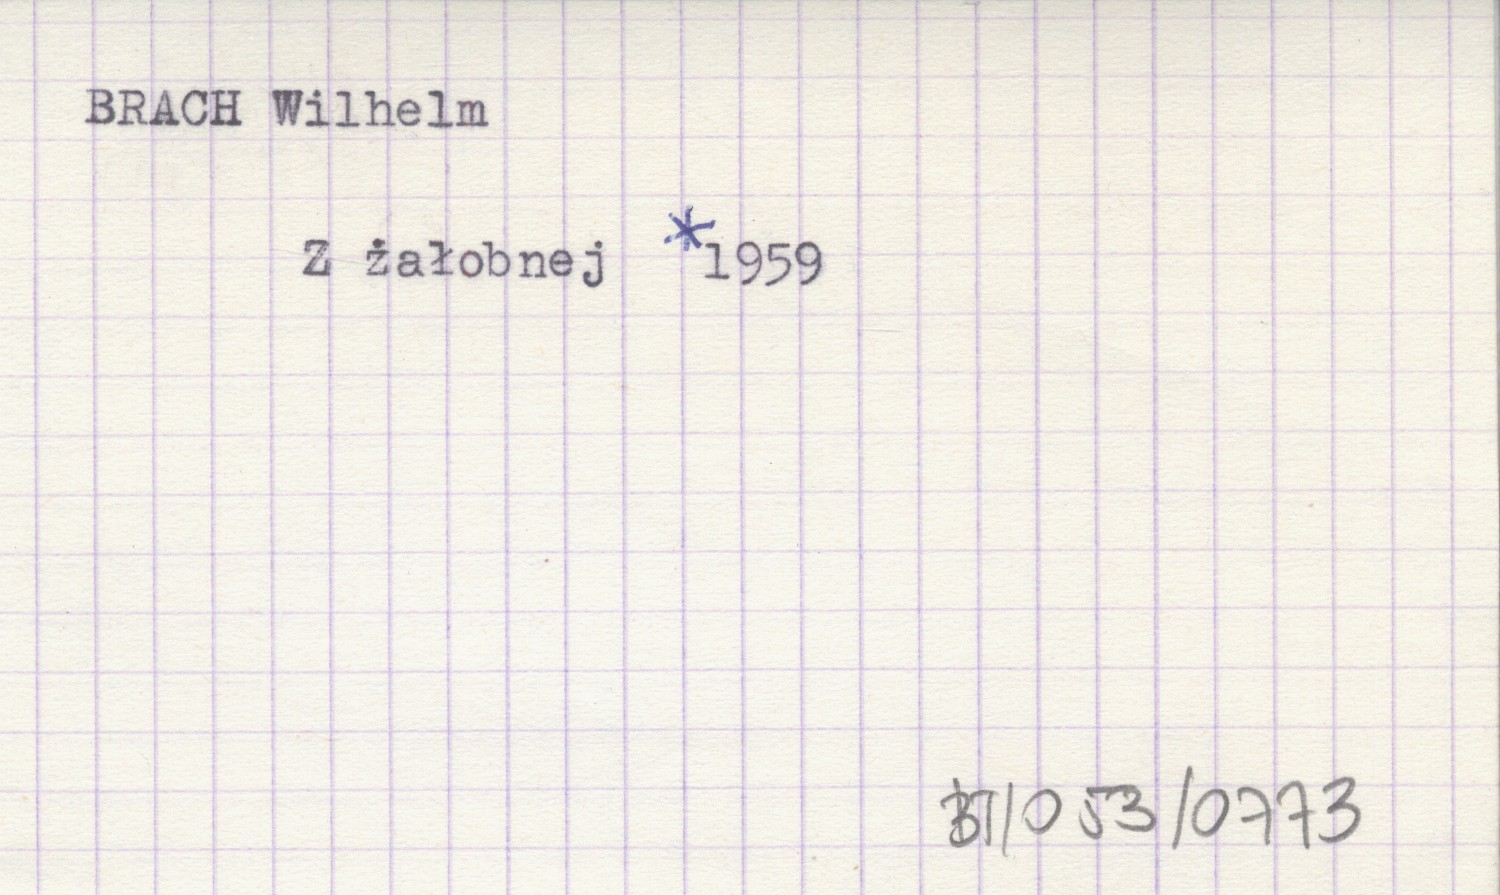 BRACH Wilhelm
Z żałobnej *1959
BT/053/0773